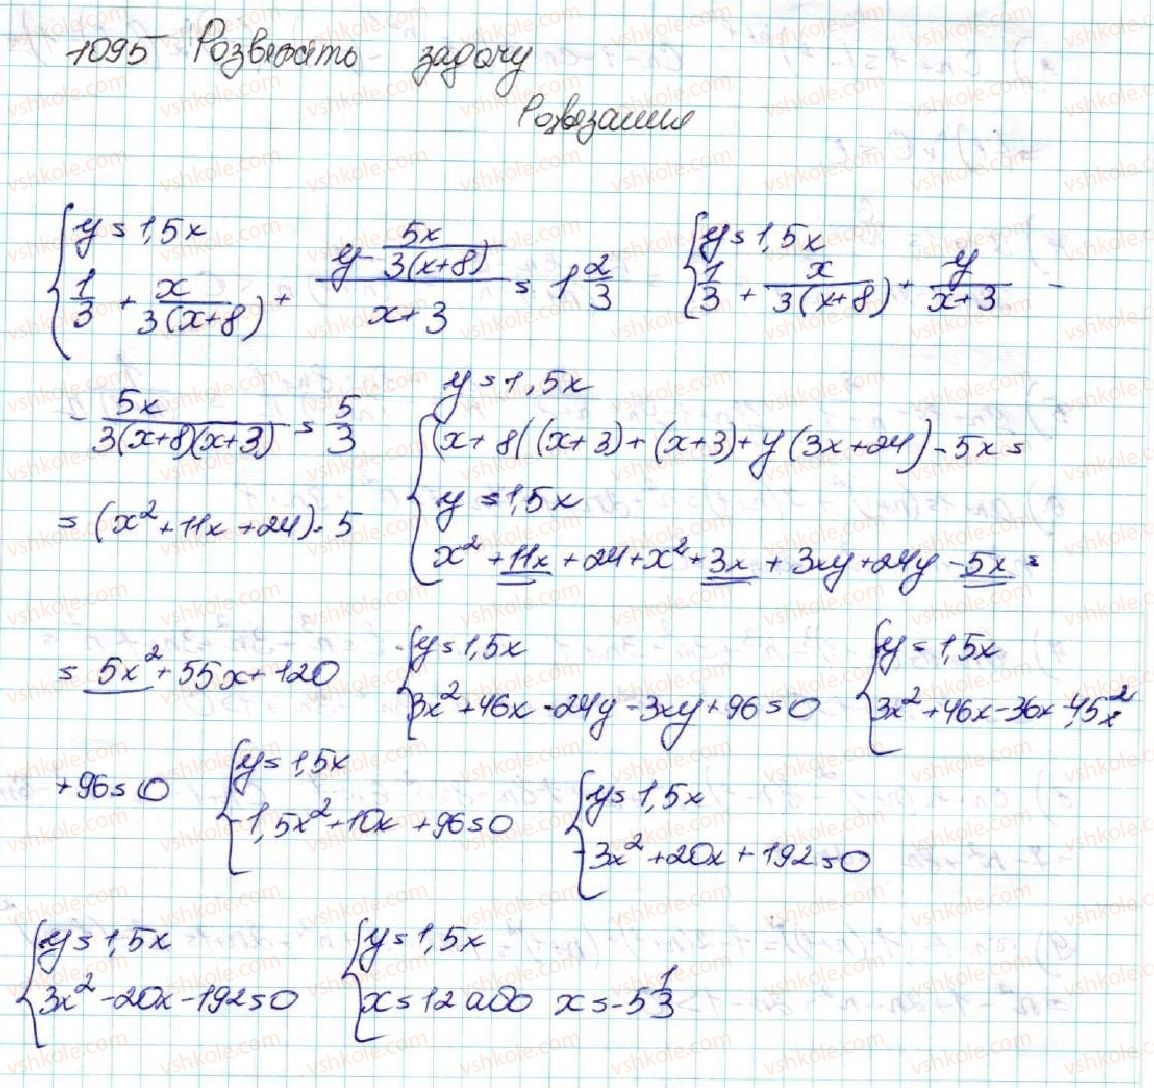 1095 Розвязать задачу
Розвезання
{ y = 1,5x
1/3 + x/(3(x+8)) + (y - 5x/(3(x+8)))/(x+3) = 1 2/3
{ y = 1,5x
1/3 + x/(3(x+8)) + y/(x+3) -
- 5x/(3(x+8)(x+3)) = 5/3
{ y = 1,5x
(x+8((x+3)+(x+3)+y(3x+24)-5x =
= (x²+11x+24)·5
{ y = 1,5x
x²+11x+24+x²+3x+3xy+24y-5x =
= 5x²+55x+120
{ y = 1,5x
3x²+46x-24y-3xy+96=0
{ y = 1,5x
3x²+46x-36x-4,5x²
+96=0
{ y = 1,5x
-1,5x²+10x+96=0
{ y = 1,5x
-3x²+20x+192=0
{ y = 1,5x
3x²-20x-192=0
{ y = 1,5x
x=12 або x=-5 1/3